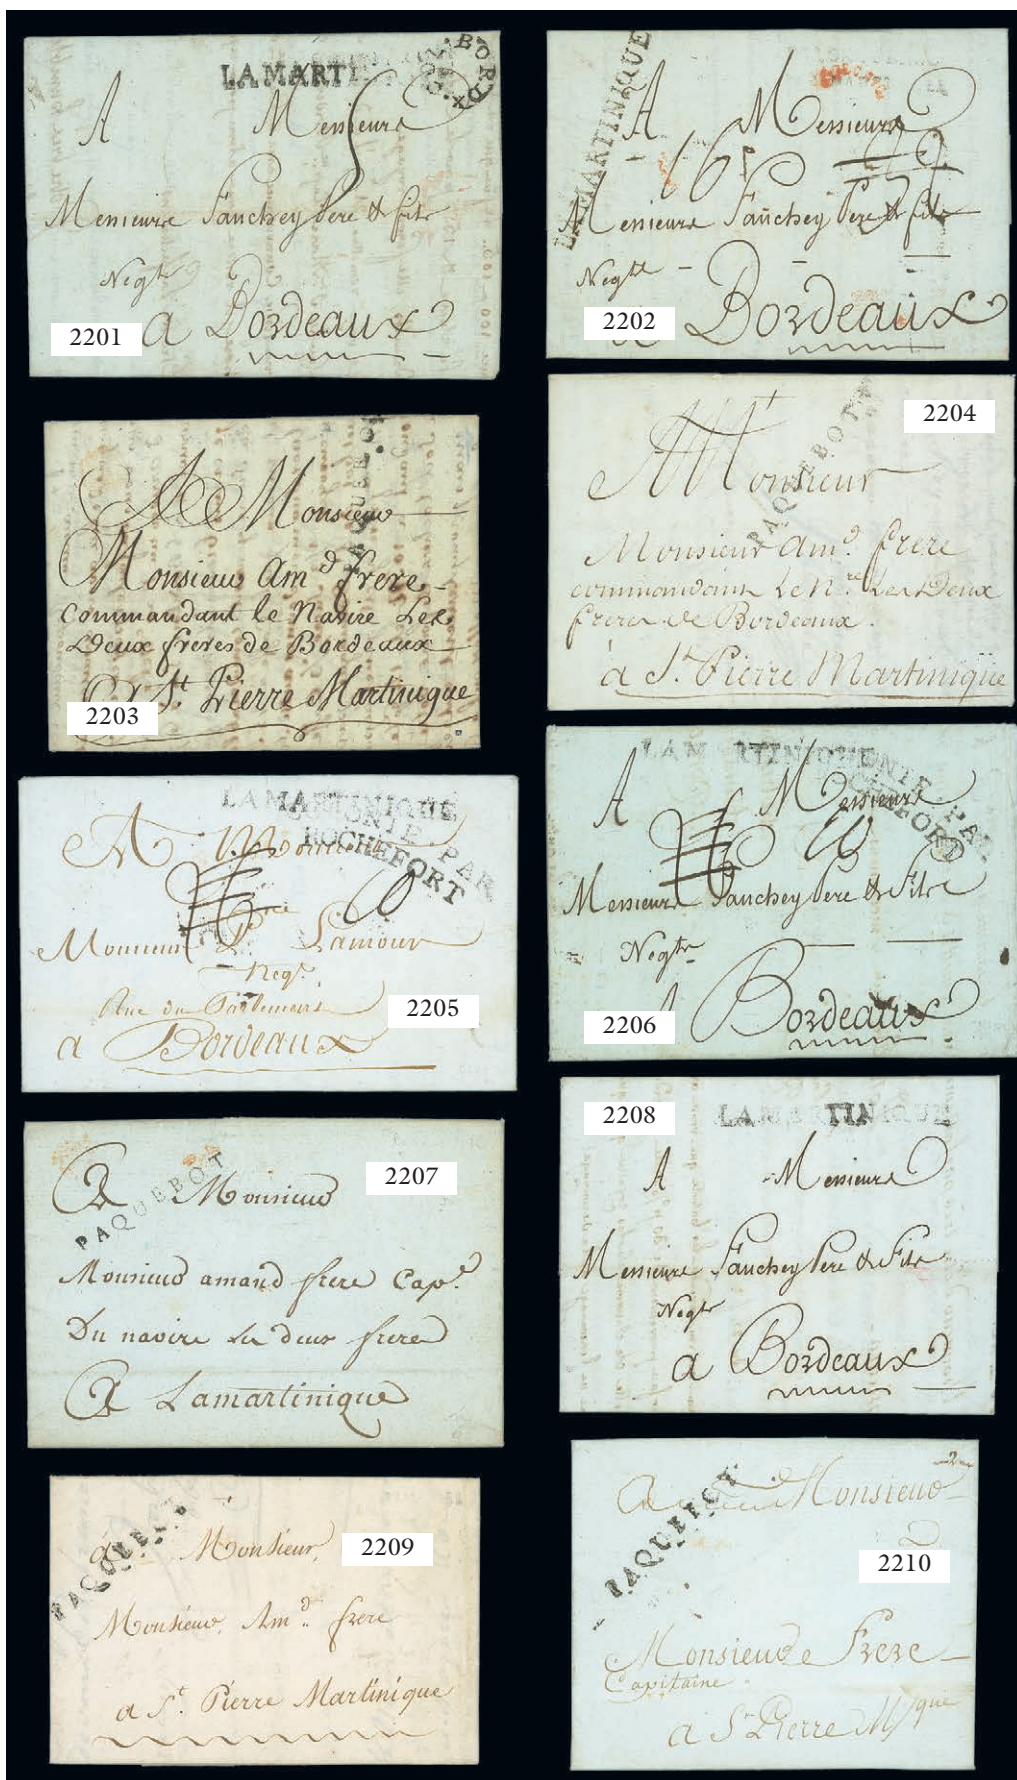 LA MARTI
COL. BORDX
A Messieurs
Messieurs Fauchey Pere & fils
Negts
2201
a Bordeaux
LA MARTINIQUE
A Messieurs
16
Messieurs Fauchey Pere & fils
Negts
2202
Bordeaux
A Monsieur
PAQUEBO
Monsieur Amd frere
Commandant le Navire Les
Deux freres de Bordeaux
a St. Pierre Martinique
2203
2204
PAQUEBOT
A Monsieur
Monsieur Amd. frere
commandant Le N.re Les Deux
freres de Bordeaux.
à St. Pierre Martinique
LA MARTINIQUE
PAR
ROCHEFORT
A Monsieur
10
Monsieur Lamour
Negt.
Rue du Parlement
2205
a Bordeaux
LA MARTINIQUE
PAR
A Messieurs
10
Messieurs Fauchey Pere & Fils
Negts
2206
Bordeaux
2207
A Monsieur
PAQUEBOT
Monsieur amand frere Cape.
Du navire les deux freres
A Lamartinique
2208
LA MARTINIQUE
A Messieurs
Messieurs Fauchey Pere & Fils
Negts
a Bordeaux
PAQUEB
à Monsieur
2209
Monsieur, Amd. frere
a St. Pierre Martinique
2
a Monsieur
PAQUEBOT
2210
Monsieur Frere
Capitaine
a St Pierre M/que